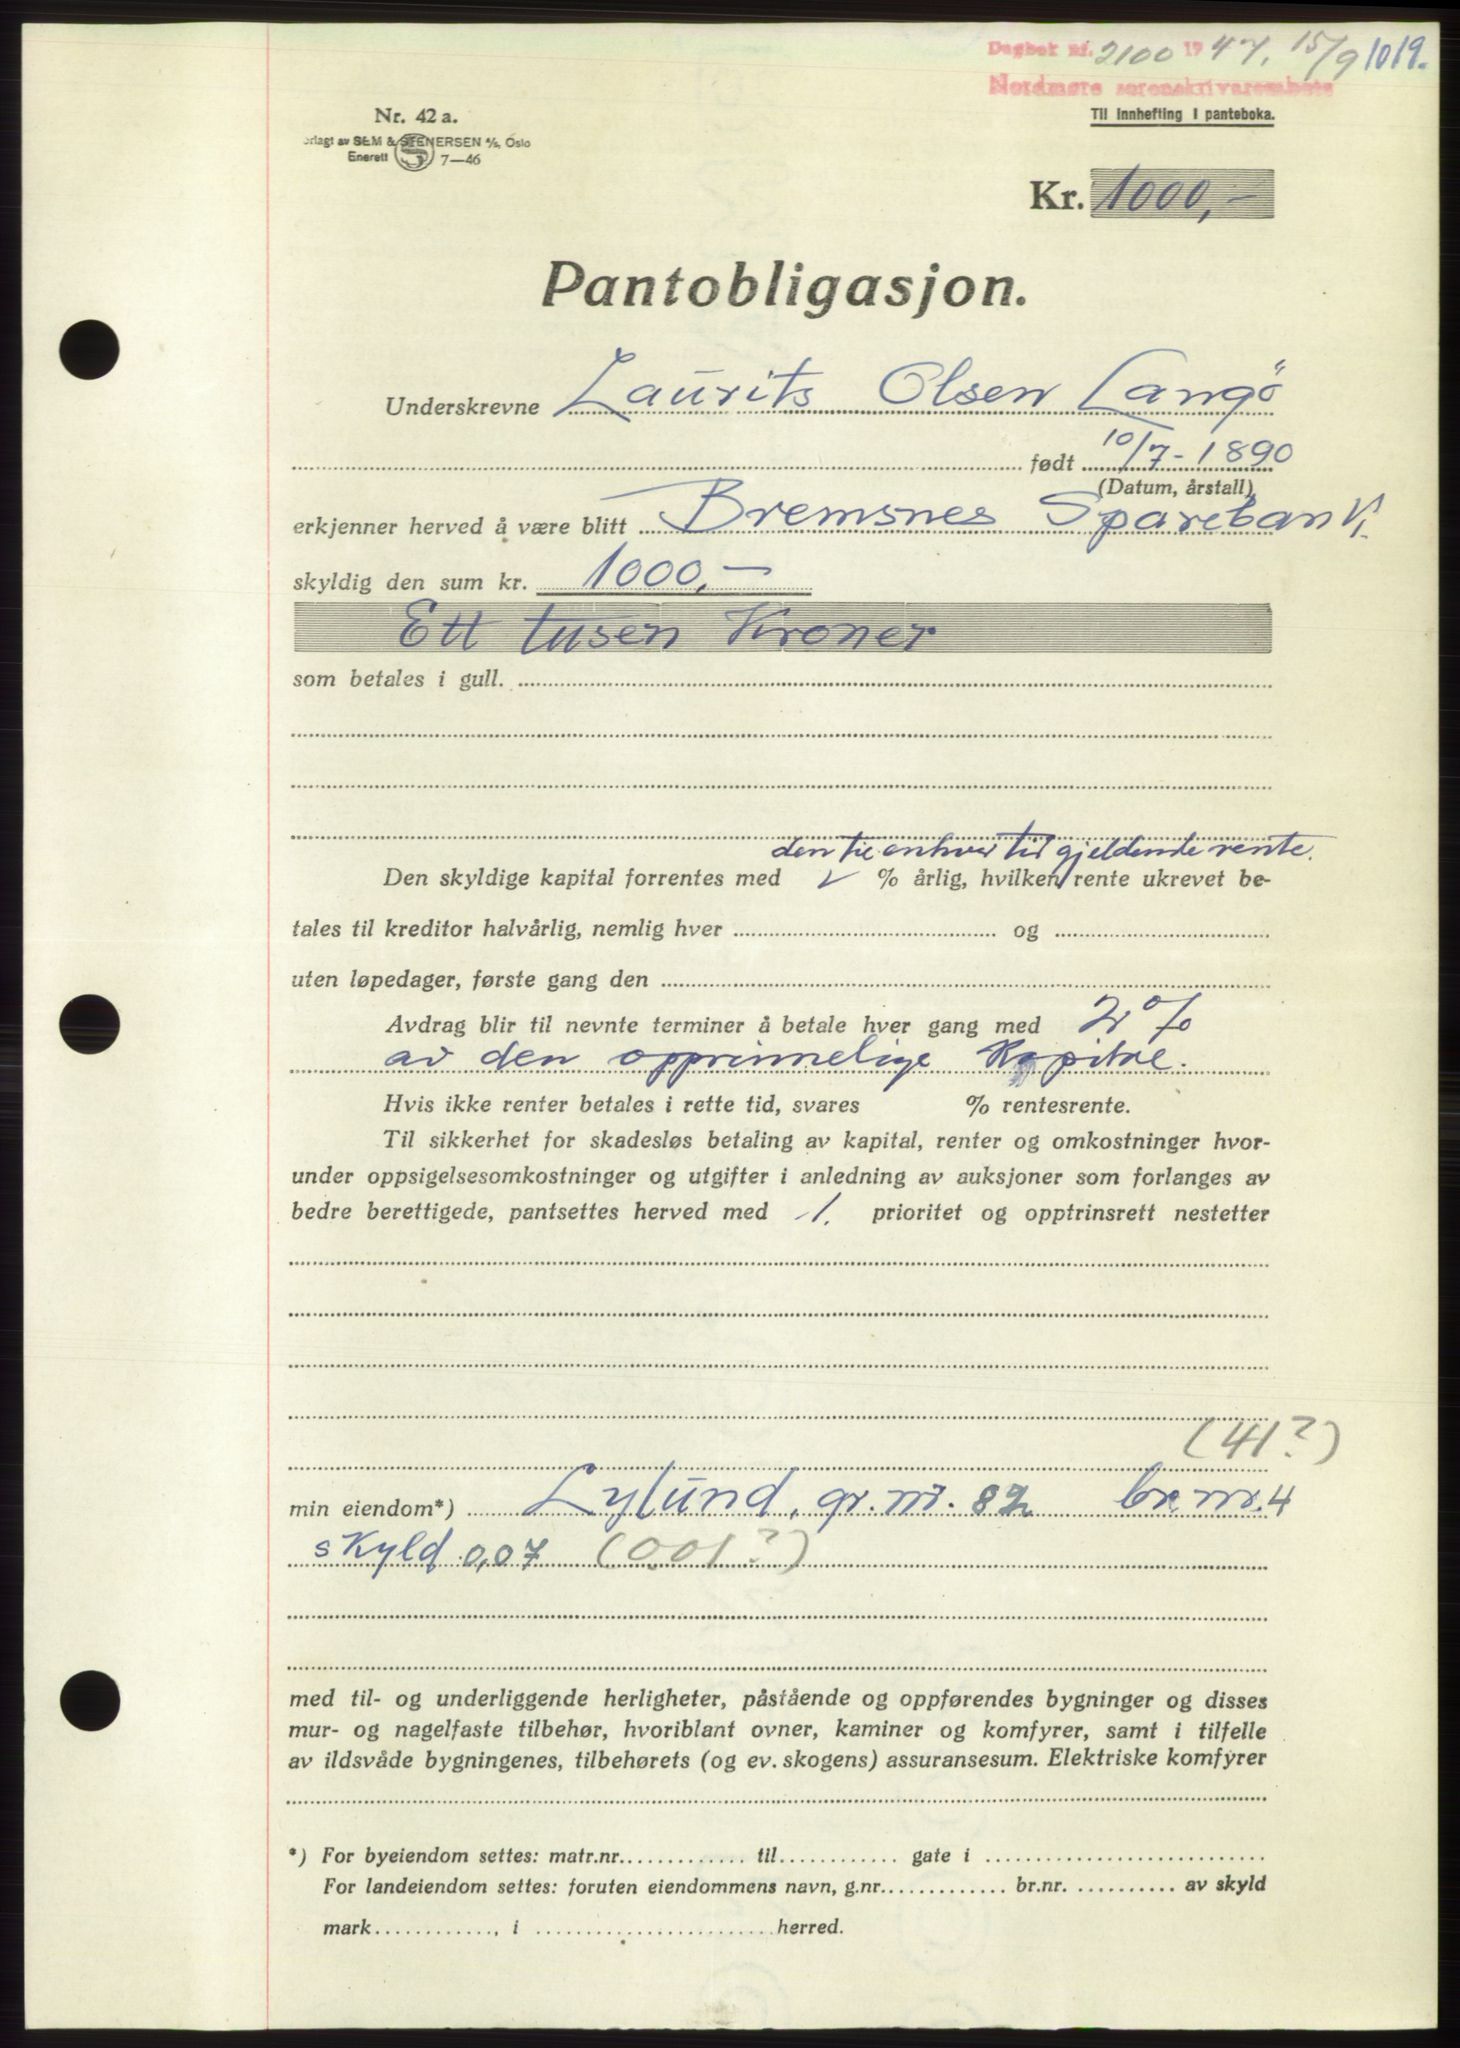 Dagbok nr. 2100 1947. 15/9 1019.
Nordmøre sorenskrivarembete
Til innhefting i panteboka.
Nr. 42 a.
orlagt av SEM & STENERSEN A/S, Oslo
Enerett 7—46
Kr. 1000,-
Pantobligasjon.
Underskrevne Laurits Olsen Langö
født 10/7-1890
(Datum, årstall)
erkjenner herved å være blitt Bremsnes Sparebank
skyldig den sum kr. 1000,-
Ett tusen Kroner
som betales i gull.
den til enhver tid gjeldende rente.
Den skyldige kapital forrentes med % årlig, hvilken rente ukrevet be-
tales til kreditor halvårlig, nemlig hver og
uten løpedager, første gang den
Avdrag blir til nevnte terminer å betale hver gang med 2 %
av den opprinnelige Kapital.
Hvis ikke renter betales i rette tid, svares % rentesrente.
Til sikkerhet for skadesløs betaling av kapital, renter og omkostninger hvor-
under oppsigelsesomkostninger og utgifter i anledning av auksjoner som forlanges av
bedre berettigede, pantsettes herved med 1. prioritet og opptrinsrett nestetter
(41?)
min eiendom*) Lylund, gr. nr. 82 br. nr. 4
skyld 0,07 (001?)
med til- og underliggende herligheter, påstående og oppførendes bygninger og disses
mur- og nagelfaste tilbehør, hvoriblant ovner, kaminer og komfyrer, samt i tilfelle
av ildsvåde bygningenes, tilbehørets (og ev. skogens) assuransesum. Elektriske komfyrer
*) For byeiendom settes: matr.nr. til gate i
For landeiendom settes: foruten eiendommens navn, g.nr. br.nr. av skyld
mark , i herred.